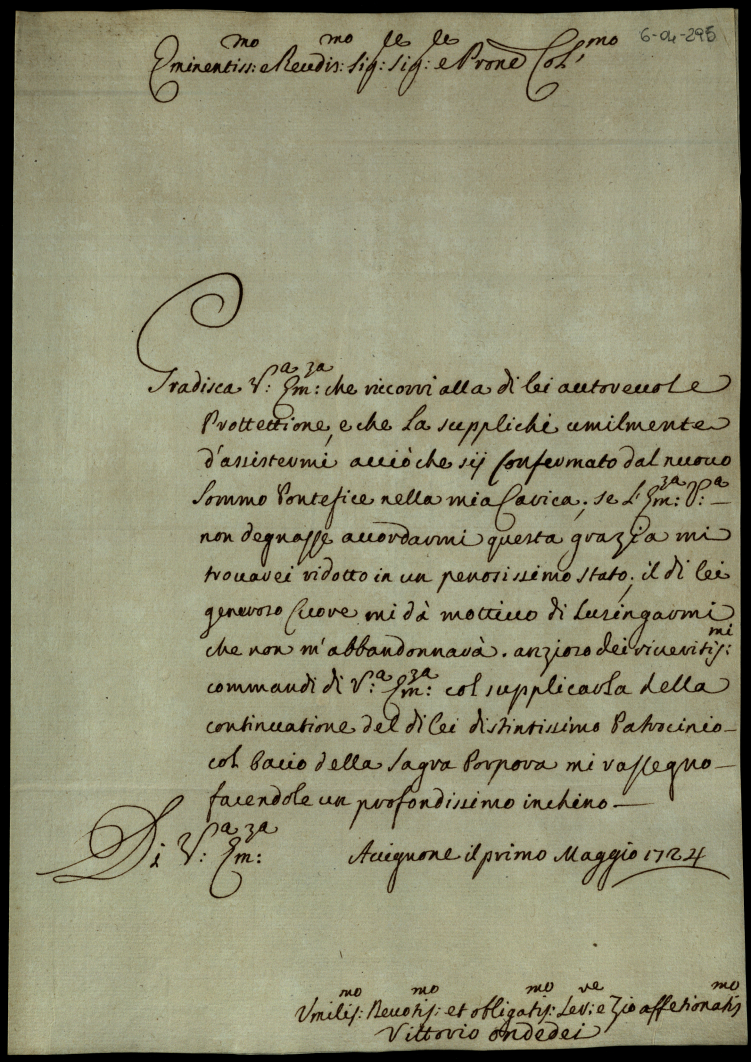 6-04-295
Eminentiss:mo e Reudis:mo Sig:re Sig:re e Prone Col:mo
Gradisca V:a Em:za che ricorri alla di lei autoreuole
Prottettione, e che La supplichi umilmente
d'assistermi acciò che sij Confermato dal nuouo
Sommo Pontefice nella mia Carica; se L'Em:za V:a
non degnasse accordarmi questa grazia mi
trouarei ridotto in un penosissimo stato; il di lei
generoso Cuore mi dà mottiuo di Lusingarmi
che non m'abbandonnarà. anzioso dei riueritis:mi
commandi di V:a Em:za col supplicarla della
continuatione del di lei distintissimo Patrocinio
col bacio della Sagra Porpora mi rassegno
facendole un profondissimo inchino
Di V:a Em:za Auignone il primo Maggio 1724
Vmilis:mo et obligatis:mo Ser:re e Zio affetionatis:mo
Vittorio Ondedei